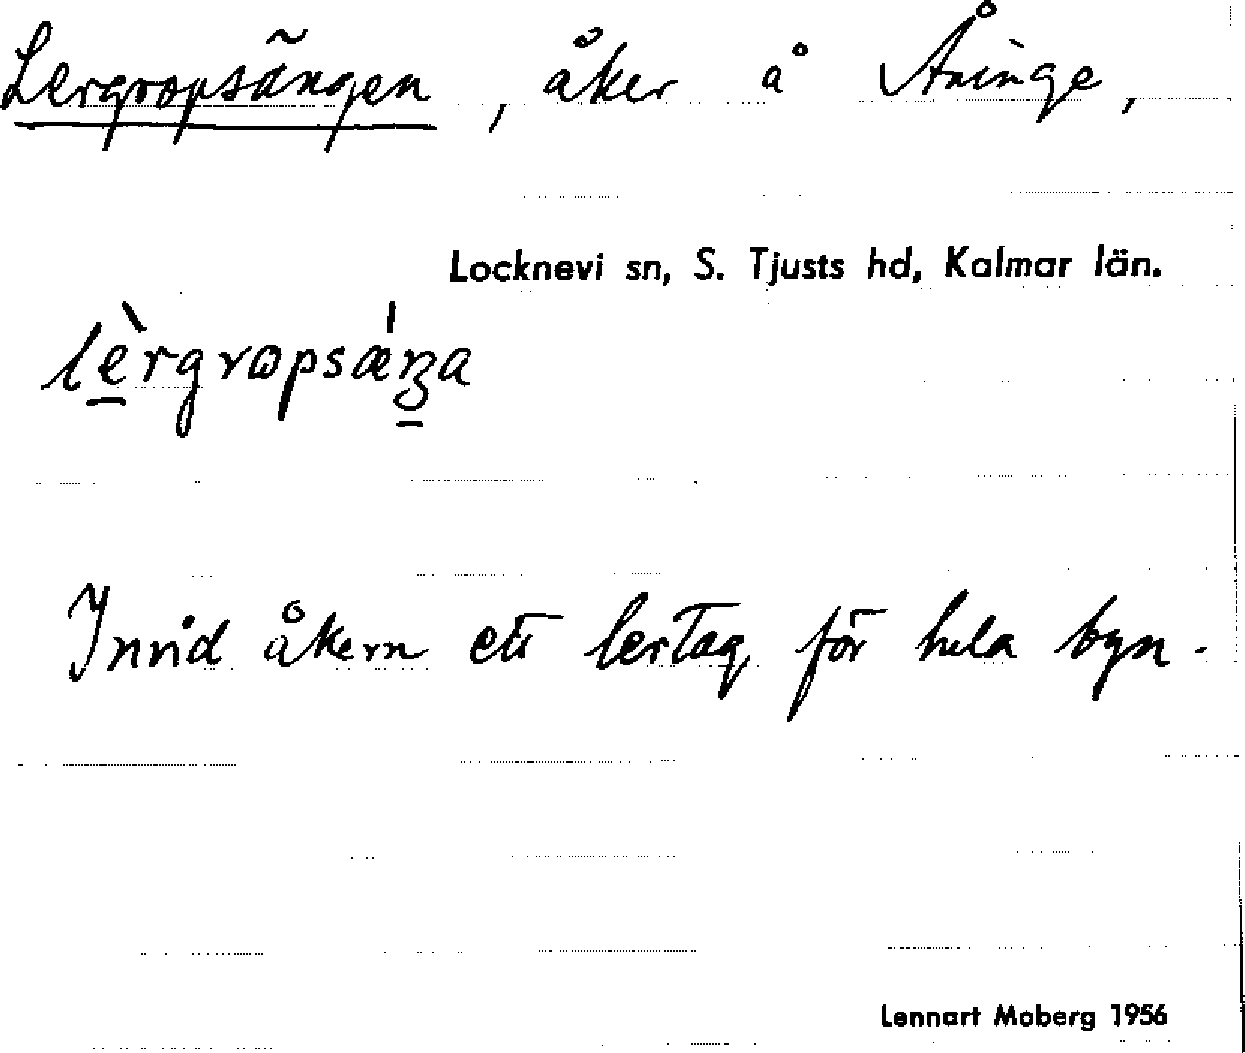 Lergropsängen, åker å Åninge,
Locknevi sn, S. Tjusts hd, Kalmar län.
lèrgropsæ̀ŋa
Invid åkern ett lertag för hela byn.
Lennart Moberg 1956